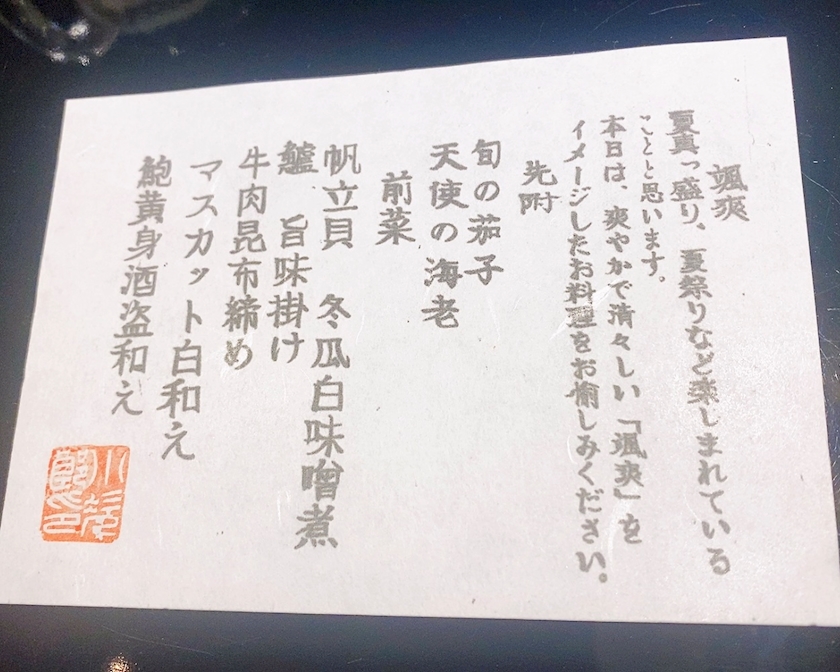 颯爽
夏真っ盛り、夏祭りなど楽しまれている
ことと思います。
本日は、爽やかで清々しい「颯爽」を
イメージしたお料理をお愉しみください。
先附
旬の茄子
天使の海老
前菜
帆立貝 冬瓜白味噌煮
鱸 旨味掛け
牛肉昆布締め
マスカット白和え
鮑黄身酒盗和え